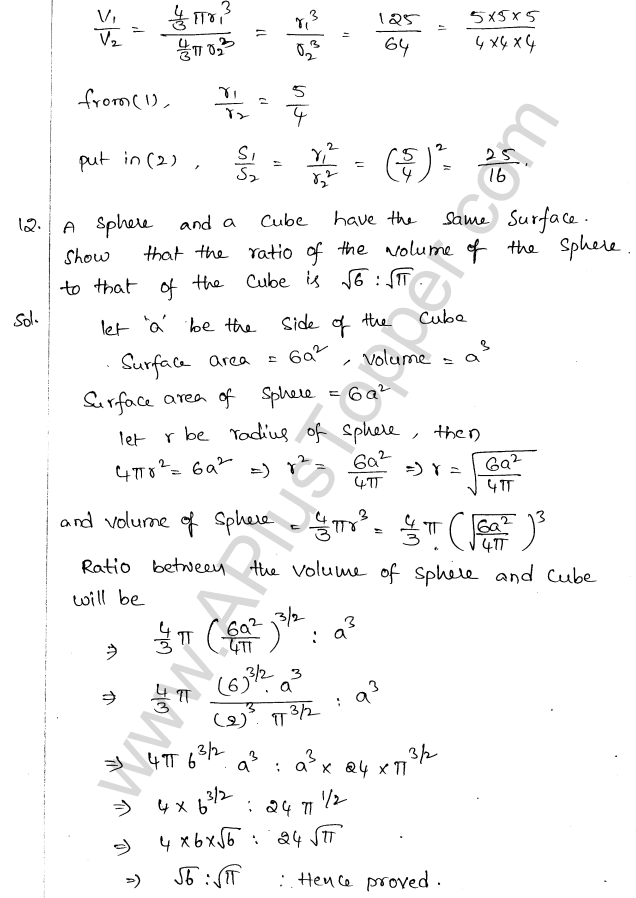 V₁/V₂ = (4/3 πr₁³)/(4/3 πr₂³) = r₁³/r₂³ = 125/64 = (5×5×5)/(4×4×4)
from(1), r₁/r₂ = 5/4
put in(2), S₁/S₂ = r₁²/r₂² = (5/4)² = 25/16.
12. A sphere and a cube have the same surface.
Show that the ratio of the volume of the sphere
to that of the cube is √6 : √π.
Sol. let 'a' be the side of the cube
Surface area = 6a², volume = a³
Surface area of sphere = 6a²
let r be radius of sphere, then
4πr² = 6a² => r² = 6a²/4π => r = √(6a²/4π)
and volume of sphere = 4/3 πr³ = 4/3 π (√(6a²/4π))³
Ratio between the volume of sphere and cube
will be
=> 4/3 π (6a²/4π)^3/2 : a³
=> 4/3 π ((6)^3/2 . a³)/((2)³ . π^3/2) : a³
=> 4π 6^3/2 a³ : a³ × 24 × π^3/2
=> 4 × 6^3/2 : 24 π^1/2
=> 4×6×√6 : 24 √π
=> √6 : √π ∴ Hence proved.
www.APlusTopper.com